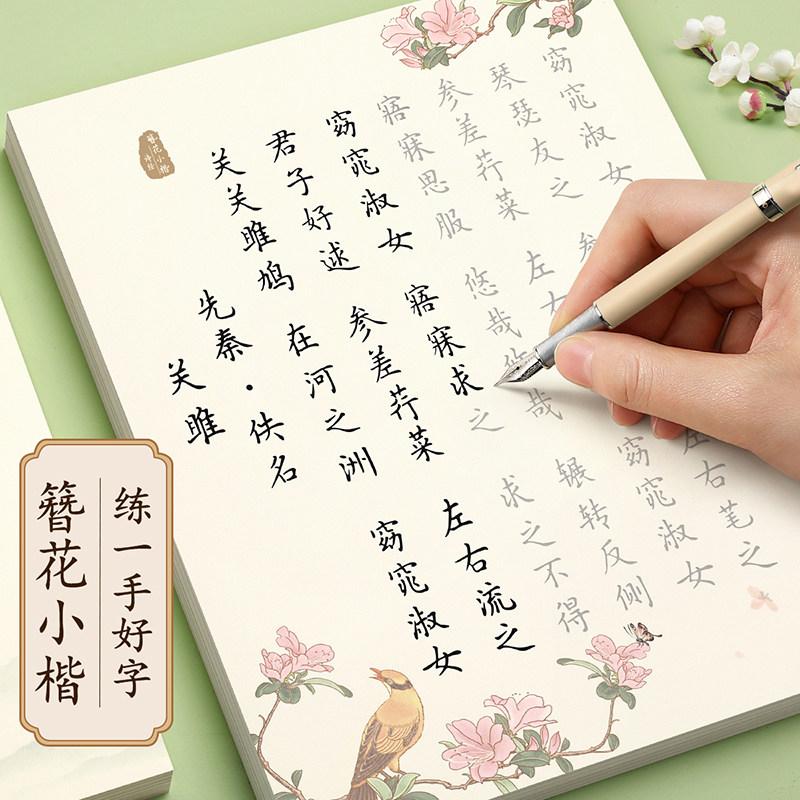 簪花小楷
诗经
关雎
先秦·佚名
关关雎鸠
在河之洲
窈窕淑女
君子好逑
参差荇菜
左右流之
窈窕淑女
寤寐求之
求之不得
寤寐思服
悠哉悠哉
辗转反侧
参差荇菜
左右
窈窕淑女
琴瑟友之
参
左右芼之
窈窕淑女
练一手好字
簪花小楷